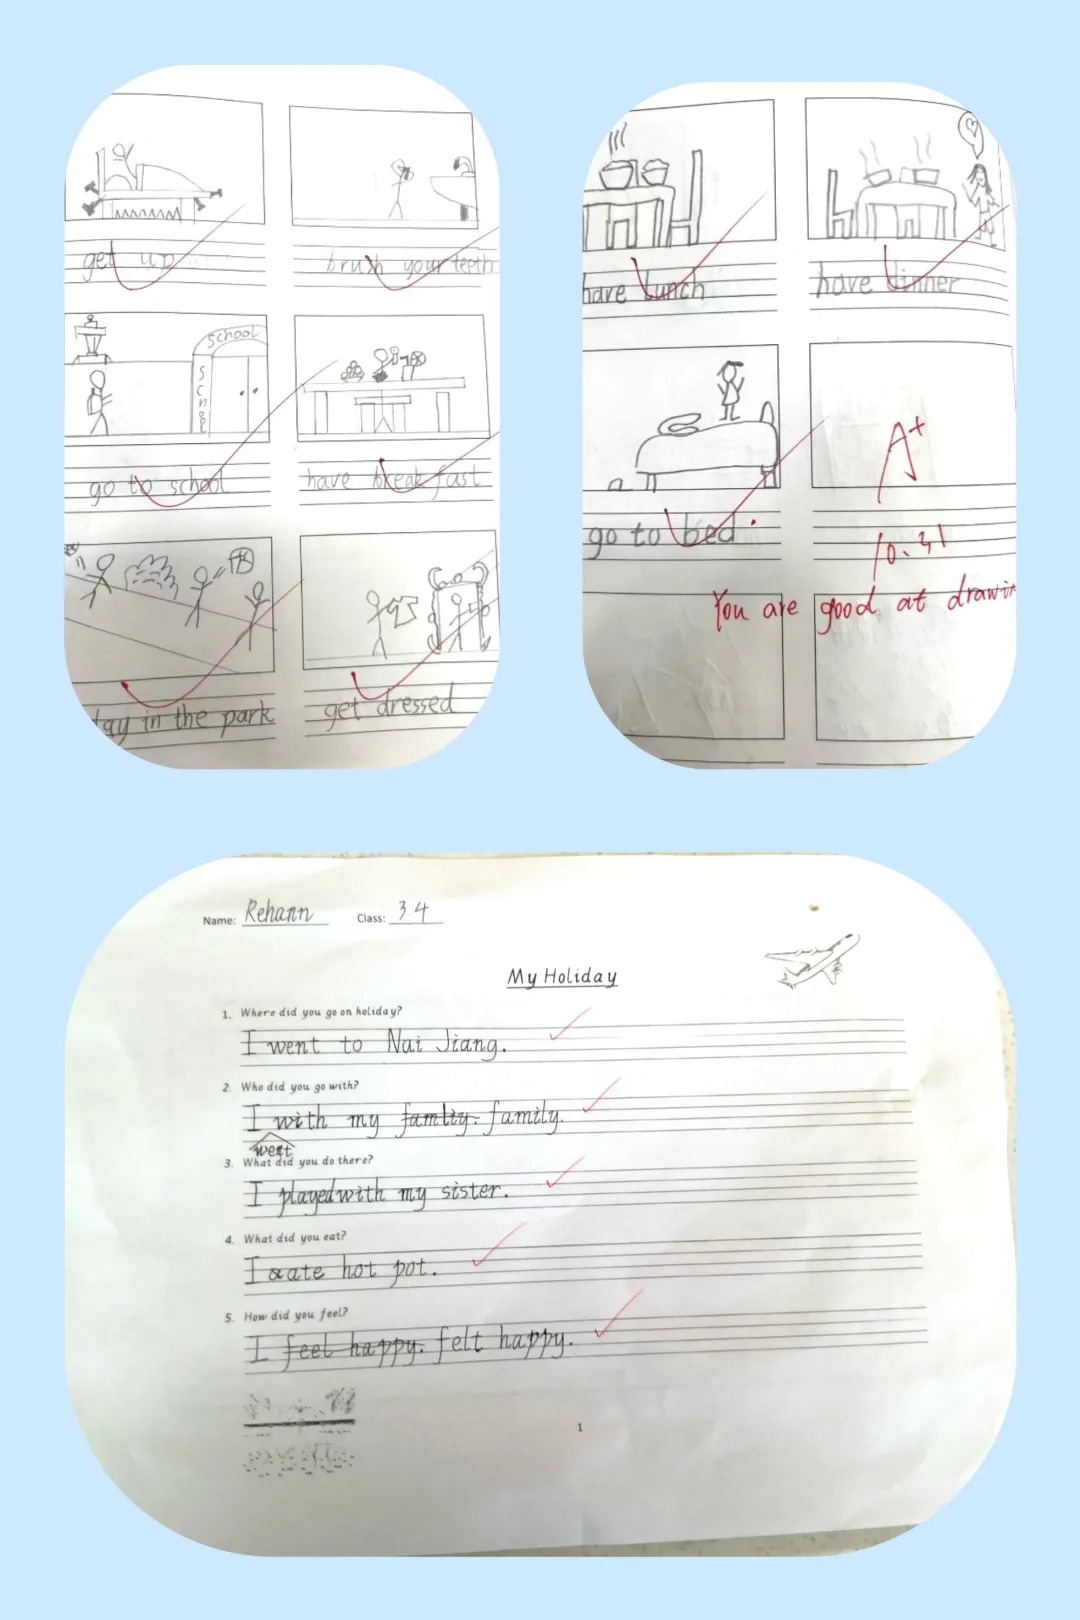 get up
brush your teeth
School
School
go to school
have breakfast
lay in the park
get dressed
have lunch
have dinner
go to bed.
A+
10.31
You are good at drawin
Name: Rehann Class: 34
My Holiday
1. Where did you go on holiday?
I went to Nai Jiang.
2. Who did you go with?
I with my famliy. family.
went
3. What did you do there?
I played with my sister.
4. What did you eat?
I ate hot pot.
5. How did you feel?
I feel happy. felt happy.
1